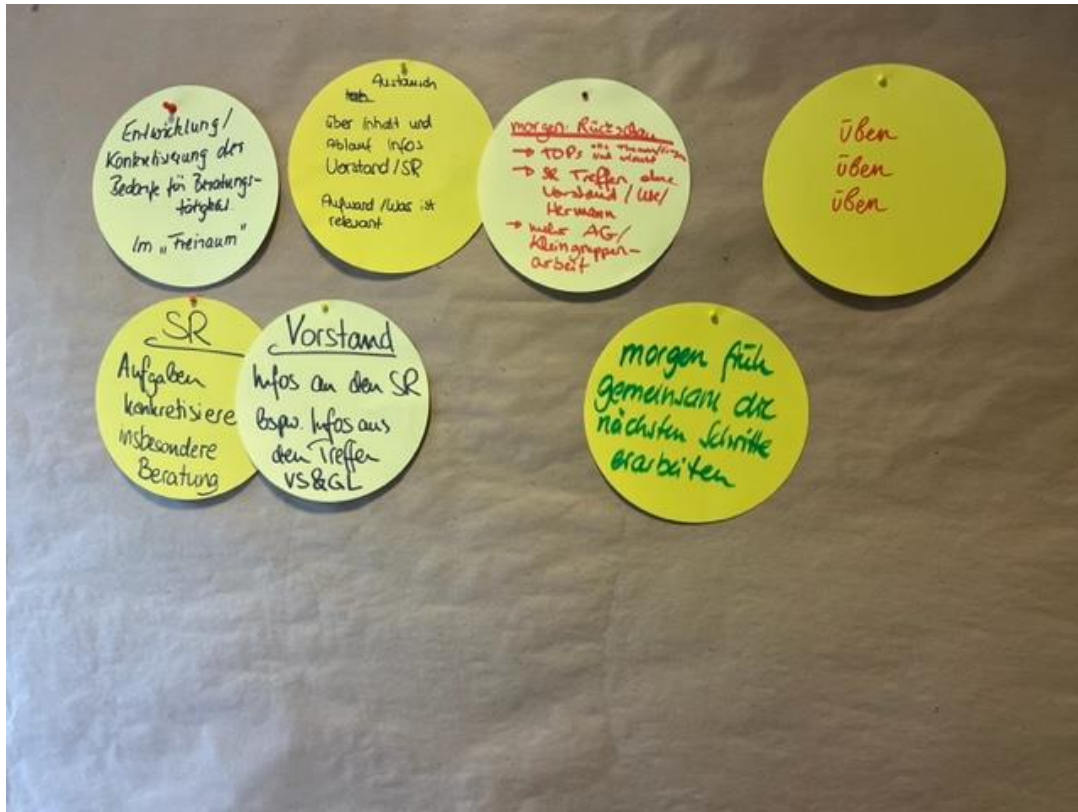 Entwicklung/
Konkretisierung der
Bedarfe für Beratungs-
tätigkeit.
Im „Freiraum"
Austausch
über Inhalt und
Ablauf Infos
Vorstand/SR
Aufwand/Was ist
relevant
morgen: Rückschau
→ TOPs
→ SR Treffen ohne
Vorstand/
Hermann
→ mehr AG/
Kleingruppen-
arbeit
üben
üben
üben
SR
Aufgaben
konkretisiere
insbesondere
Beratung
Vorstand
Infos an den SR
bspw. Infos aus
den Treffen
VS&GL
morgen früh
gemeinsam die
nächsten Schritte
erarbeiten